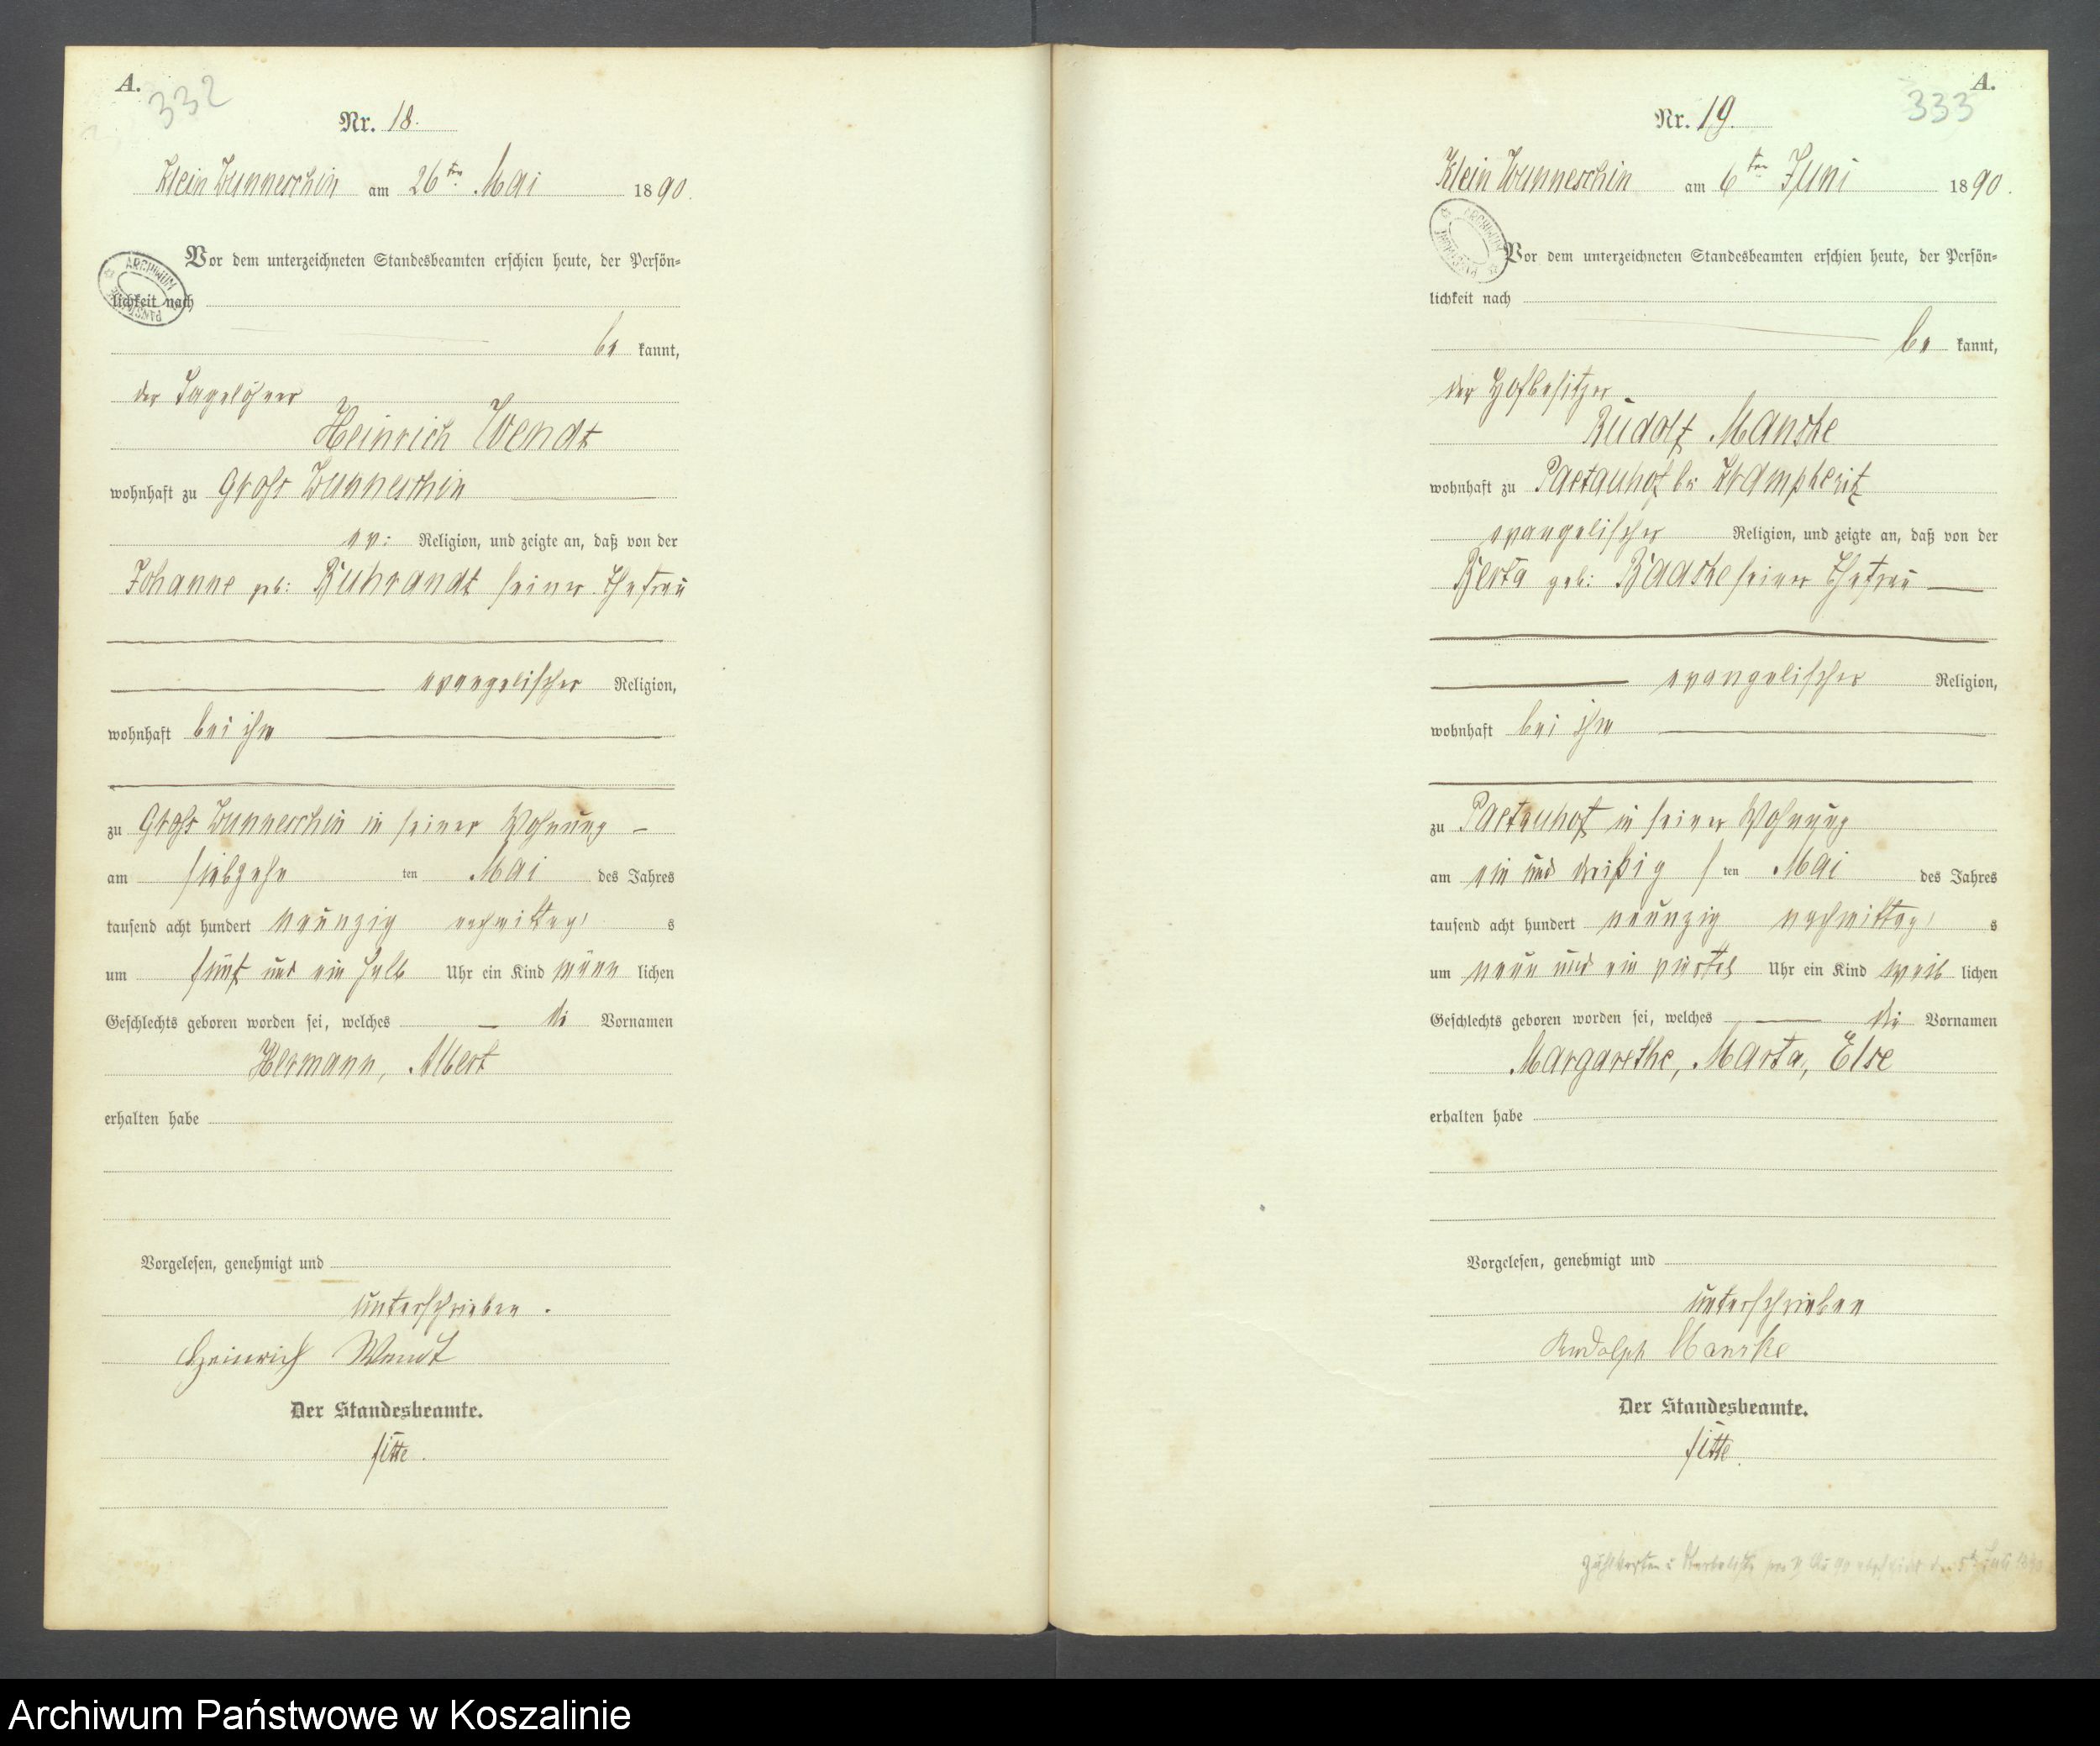 A.
332
Nr. 18.
Klein Wunneschin am 26ten Mai 1890.
Vor dem unterzeichneten Standesbeamten erschien heute, der Persön-
lichkeit nach
be kannt,
der Tagelöhner
Heinrich Wendt
wohnhaft zu Gross Wunneschin
ev: Religion, und zeigte an, daß von der
Johanne geb: Buhrandt seiner Ehefrau
evangelischer Religion,
wohnhaft bei ihm
zu Gross Wunneschin in seiner Wohnung
am siebzehn ten Mai des Jahres
tausend acht hundert neunzig nachmittag s
um fünf und ein halb Uhr ein Kind männ lichen
Geschlechts geboren worden sei, welches die Vornamen
Hermann, Albert
erhalten habe
Vorgelesen, genehmigt und
unterschrieben.
Heinrich Wendt
Der Standesbeamte.
ARCHIWUM
A.
333
Nr. 19.
Klein Wunneschin am 6ten Juni 1890.
Vor dem unterzeichneten Standesbeamten erschien heute, der Persön-
lichkeit nach
be kannt,
der Hofbesitzer
Rudolf Manske
wohnhaft zu Paetauhof bei Krampkewitz
evangelischer Religion, und zeigte an, daß von der
Berta geb: Baaske seiner Ehefrau
evangelischer Religion,
wohnhaft bei ihm
zu Paetauhof in seiner Wohnung
am ein und dreißig s ten Mai des Jahres
tausend acht hundert neunzig nachmittag s
um neun und ein viertel Uhr ein Kind weib lichen
Geschlechts geboren worden sei, welches die Vornamen
Margarethe, Marta, Else
erhalten habe
Vorgelesen, genehmigt und
unterschrieben
Rudolph Manske
Der Standesbeamte.
Archiwum Państwowe w Koszalinie